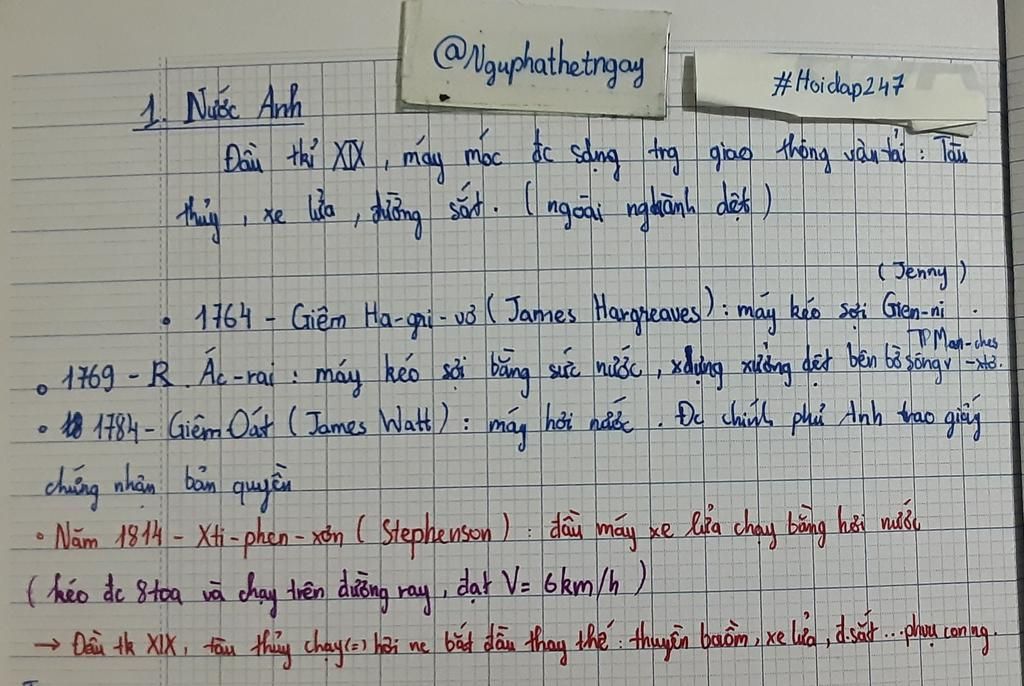 @Nguphathetngay
#Hoidap247
1. Nước Anh
Đầu thỉ XIX, máy móc đc sdụng trg giao thông vận tải: Tàu
thủy, xe lửa, đường sắt. (ngoài nghành dệt)
(Jenny)
• 1764 - Giêm Ha-gri-vơ (James Hargreaves): máy kéo sợi Gien-ni.
TP Man-ches
• 1769 - R. Ác-rai: máy kéo sợi bằng sức nước, xdựng xưởng dệt bên bờ sông -xtơ.
• 1784 - Giêm Oát (James Watt): máy hơi nước. Đc chính phủ Anh trao giấy
chứng nhận bản quyền
• Năm 1814 - Xti-phen-xơn (Stephenson): đầu máy xe lửa chạy bằng hơi nước
(kéo đc 8 toa và chạy trên đường ray, đạt V = 6km/h)
→ Đầu tk XIX, tàu thủy chạy (=) hơi nc bắt đầu thay thế: thuyền buồm, xe lửa, đ.sắt ... phvụ con ng.